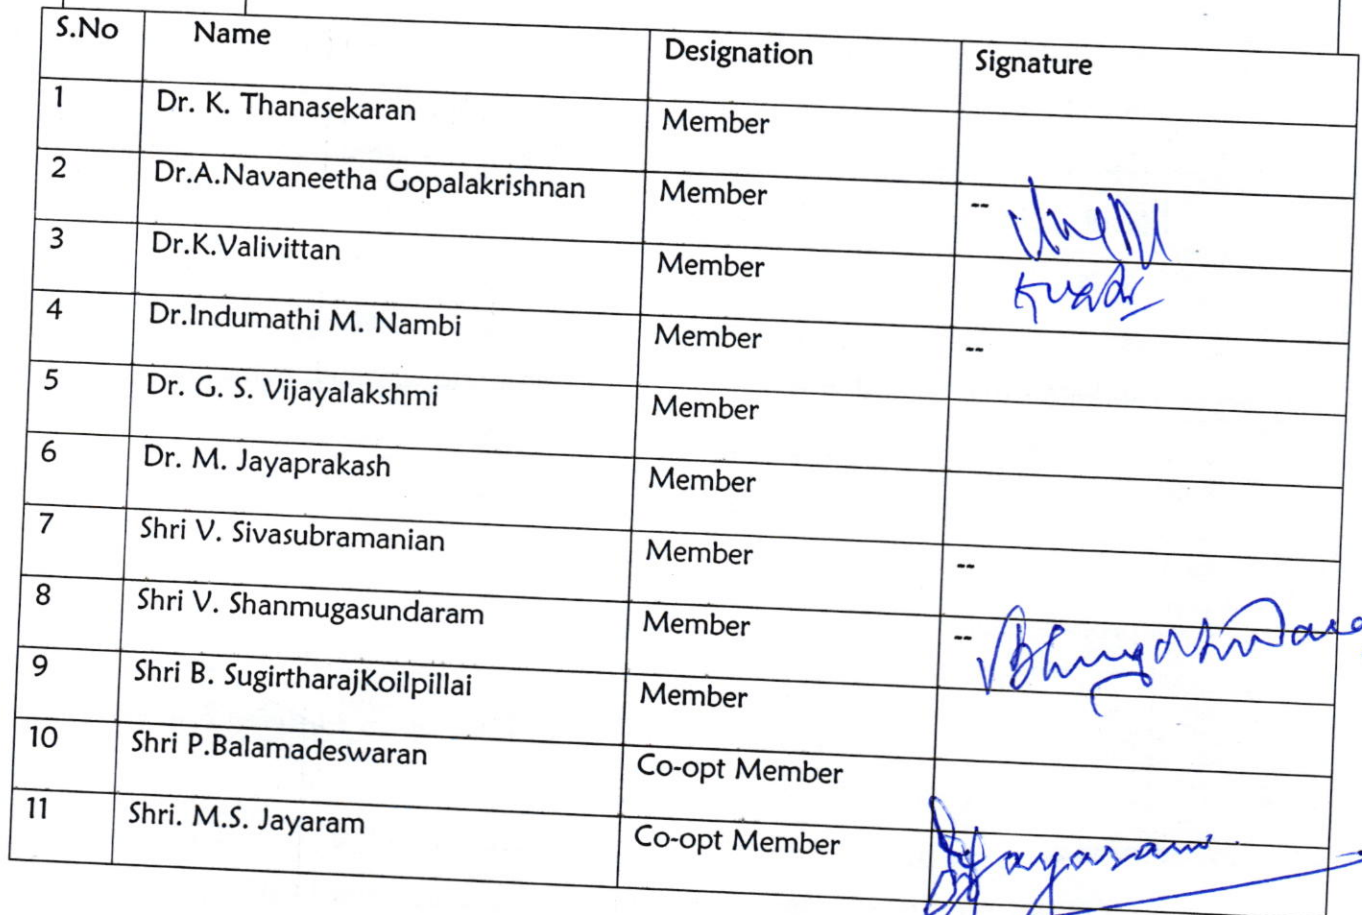 S.No Name Designation Signature
1 Dr. K. Thanasekaran Member
2 Dr.A.Navaneetha Gopalakrishnan Member --
3 Dr.K.Valivittan Member
4 Dr.Indumathi M. Nambi Member --
5 Dr. G. S. Vijayalakshmi Member
6 Dr. M. Jayaprakash Member
7 Shri V. Sivasubramanian Member --
8 Shri V. Shanmugasundaram Member --
9 Shri B. SugirtharajKoilpillai Member
10 Shri P.Balamadeswaran Co-opt Member
11 Shri. M.S. Jayaram Co-opt Member